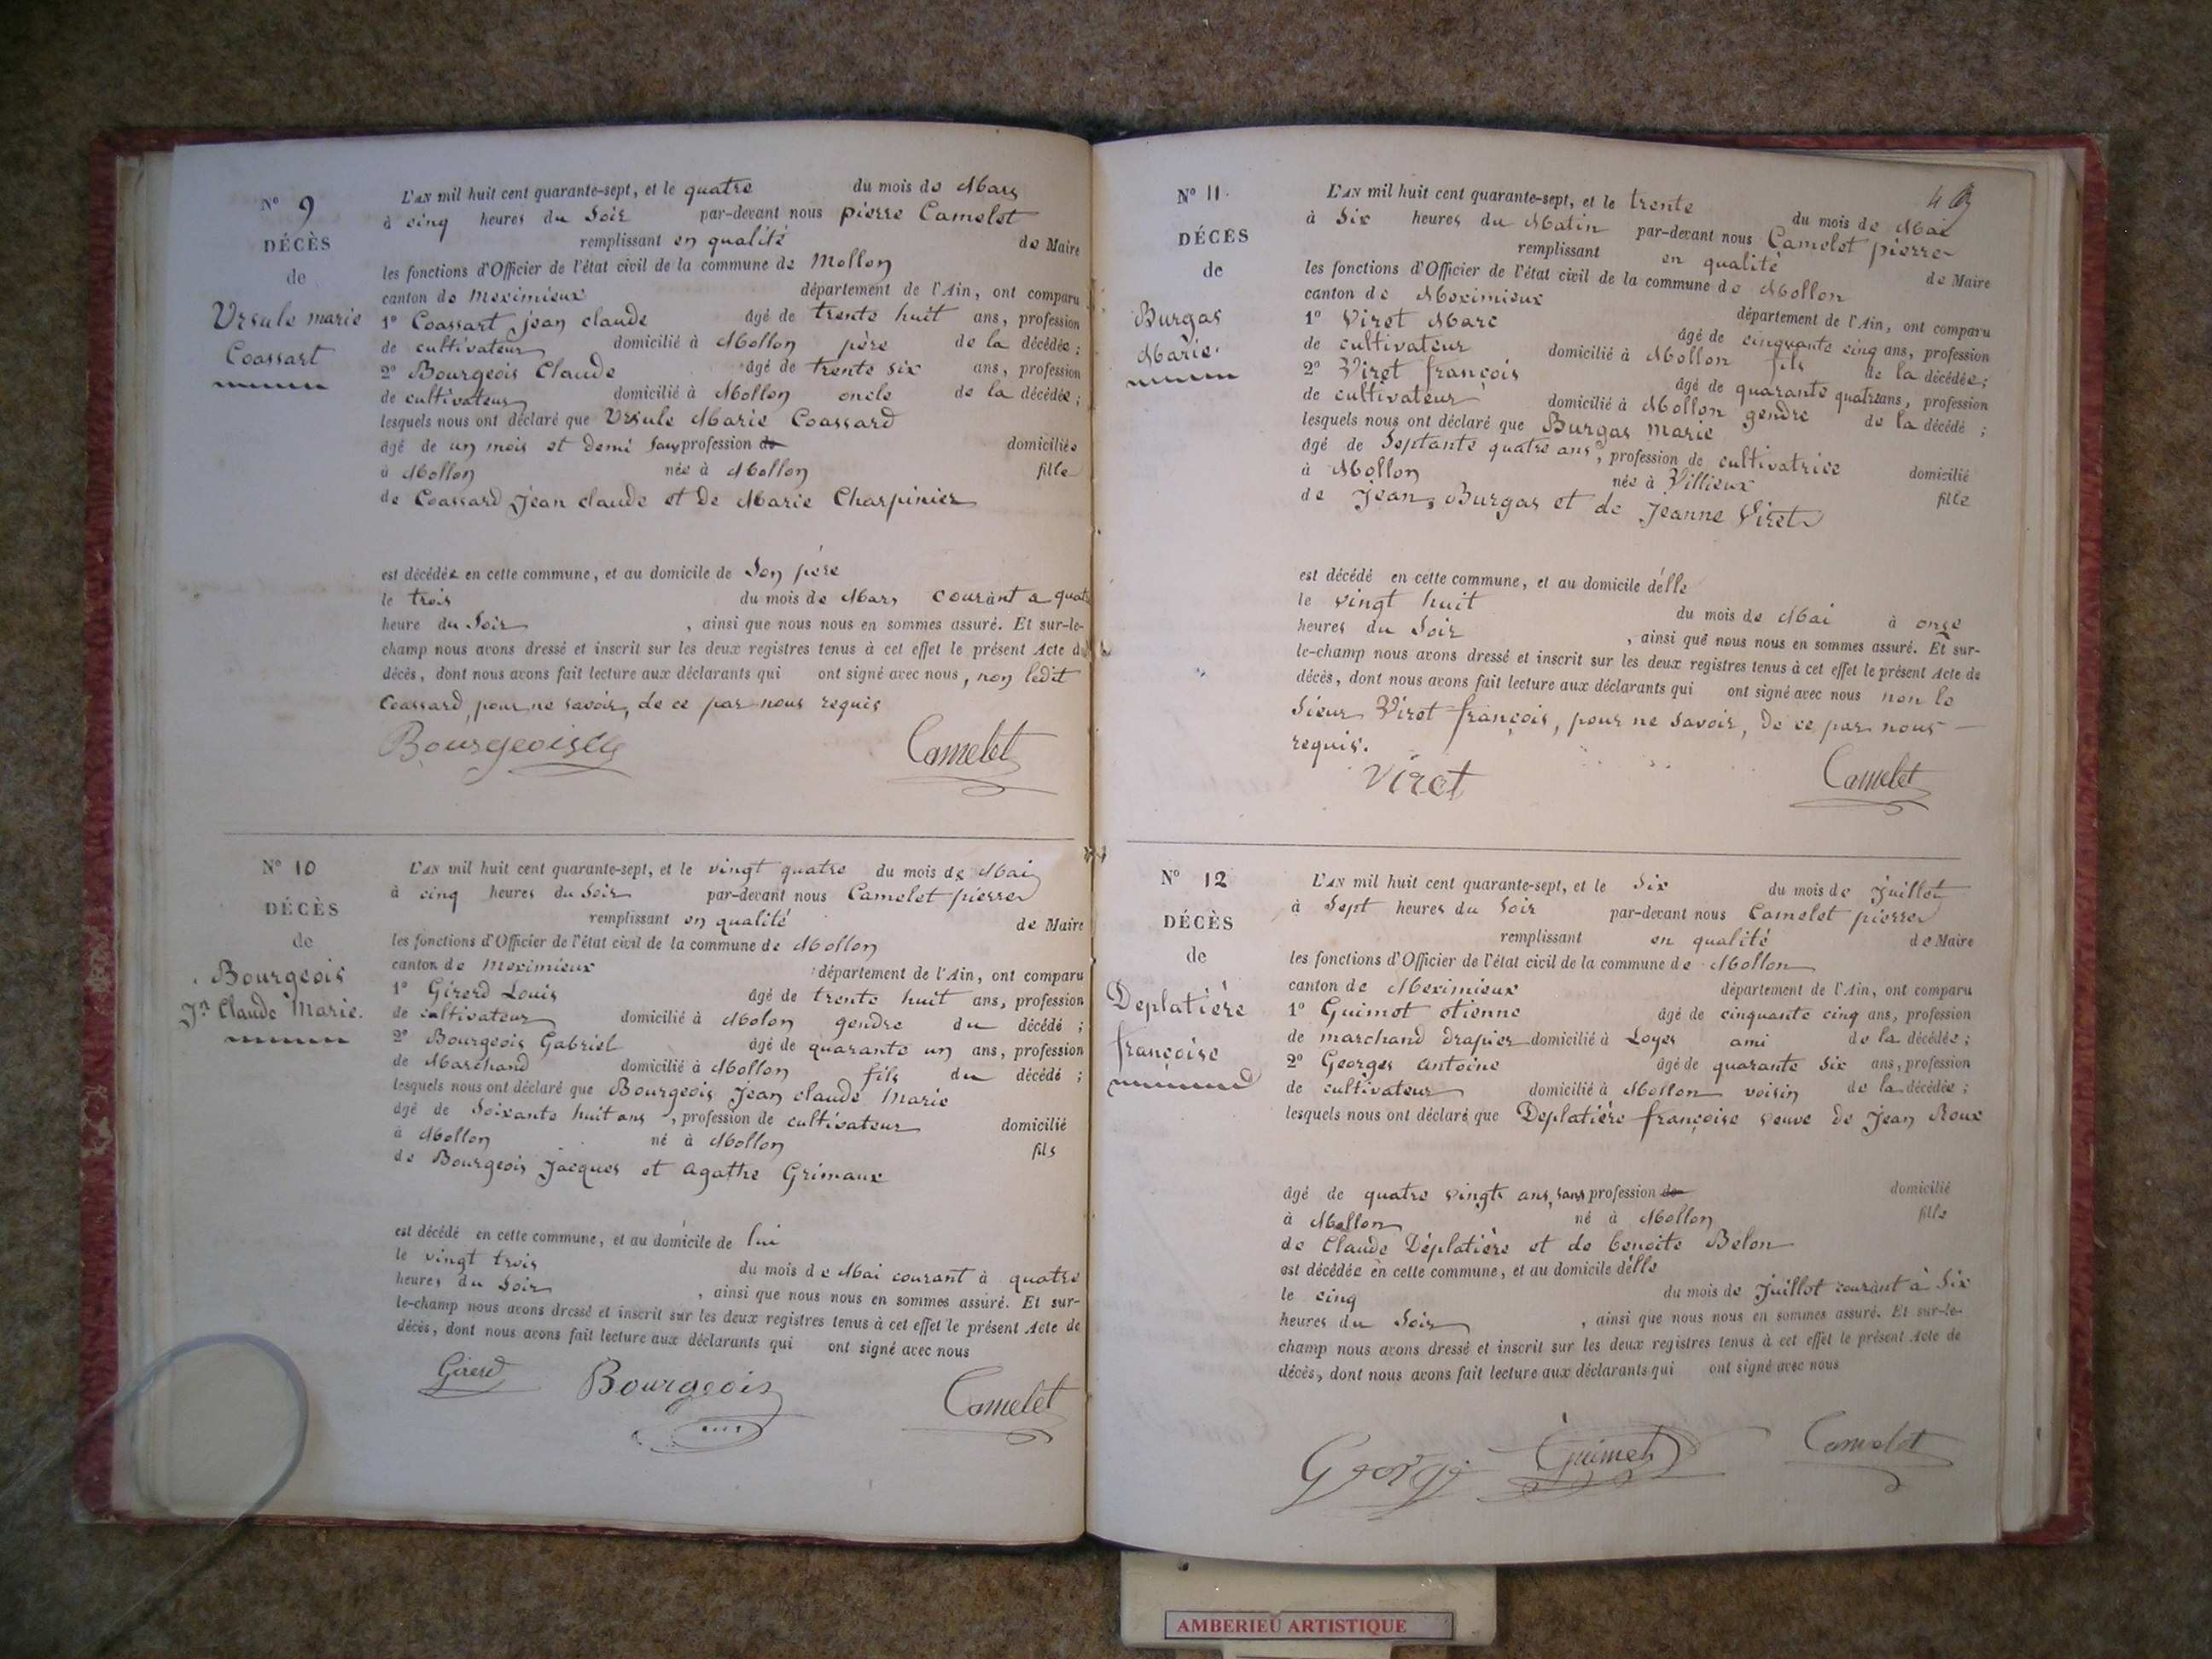 Nº 9
DÉCÈS
de
Ursule marie
Coassart
L'AN mil huit cent quarante-sept, et le quatre du mois de Mars
à cinq heures du Soir par-devant nous pierre Camelot
remplissant en qualité de Maire
les fonctions d'Officier de l'état civil de la commune de Mollon
canton de Meximieux département de l'Ain, ont comparu
1º Coassart jean claude âgé de trente huit ans, profession
de cultivateur domicilié à Mollon père de la décédée ;
2º Bourgeois Claude âgé de trente six ans, profession
de cultivateur domicilié à Mollon oncle de la décédée ;
lesquels nous ont déclaré que Ursule Marie Coassard
âgé de un mois et demi Sans profession de domiciliée
à Mollon née à Mollon fille
de Coassard Jean claude et de Marie Charpinier
est décédée en cette commune, et au domicile de Son père
le trois du mois de Mars courant a quatre
heure du Soir , ainsi que nous nous en sommes assuré. Et sur-le-
champ nous avons dressé et inscrit sur les deux registres tenus à cet effet le présent Acte de
décès, dont nous avons fait lecture aux déclarants qui ont signé avec nous, non ledit
Coassard, pour ne savoir, de ce par nous requis
Bourgeois Camelot
Nº 10
DÉCÈS
de
Bourgeois
Jn Claude Marie.
L'AN mil huit cent quarante-sept, et le vingt quatre du mois de Mai
à cinq heures du Soir par-devant nous Camelot pierre
remplissant en qualité de Maire
les fonctions d'Officier de l'état civil de la commune de Mollon
canton de Meximieux département de l'Ain, ont comparu
1º Girerd Louis âgé de trente huit ans, profession
de cultivateur domicilié à Molon gendre du décédé ;
2º Bourgeois Gabriel âgé de quarante un ans, profession
de Marchand domicilié à Mollon fils du décédé ;
lesquels nous ont déclaré que Bourgeois Jean claude Marie
âgé de Soixante huit ans , profession de cultivateur domicilié
à Mollon né à Mollon fils
de Bourgeois Jacques et Agathe Grimaux
est décédé en cette commune, et au domicile de lui
le vingt trois du mois de Mai courant à quatre
heures du Soir , ainsi que nous nous en sommes assuré. Et sur-
le-champ nous avons dressé et inscrit sur les deux registres tenus à cet effet le présent Acte de
décès, dont nous avons fait lecture aux déclarants qui ont signé avec nous
Girerd Bourgeois Camelot
Nº 11.
DÉCÈS
de
Burgas
Marie.
L'AN mil huit cent quarante-sept, et le trente du mois de Mai
à Six heures du Matin par-devant nous Camelot pierre
remplissant en qualité de Maire
les fonctions d'Officier de l'état civil de la commune de Mollon
canton de Meximieux département de l'Ain, ont comparu
1º Viret Marc âgé de cinquante cinq ans, profession
de cultivateur domicilié à Mollon fils de la décédée ;
2º Viret françois âgé de quarante quatre ans, profession
de cultivateur domicilié à Mollon gendre de la décédé ;
lesquels nous ont déclaré que Burgas Marie
âgé de Septante quatre ans, profession de cultivatrice domicilié
à Mollon née à Villieux fille
de Jean Burgas et de Jeanne Viret
est décédé en cette commune, et au domicile délle
le vingt huit du mois de Mai à onze
heures du Soir , ainsi que nous nous en sommes assuré. Et sur-
le-champ nous avons dressé et inscrit sur les deux registres tenus à cet effet le présent Acte de
décès, dont nous avons fait lecture aux déclarants qui ont signé avec nous non le
Sieur Viret françois, pour ne savoir, de ce par nous
requis.
Viret Camelot
Nº 12
DÉCÈS
de
Deplatière
françoise
L'AN mil huit cent quarante-sept, et le Six du mois de Juillet
à Sept heures du Soir par-devant nous Camelot pierre
remplissant en qualité de Maire
les fonctions d'Officier de l'état civil de la commune de Mollon
canton de Meximieux département de l'Ain, ont comparu
1º Guimet etienne âgé de cinquante cinq ans, profession
de marchand drapier domicilié à Loyes ami de la décédée ;
2º Georges Antoine âgé de quarante Six ans, profession
de cultivateur domicilié à Mollon voisin de la décédée ;
lesquels nous ont déclaré que Deplatière françoise veuve de Jean Roux
âgé de quatre vingts ans, sans profession de domicilié
à Mollon né à Mollon fille
de Claude Déplatière et de benoite Belon
est décédée en cette commune, et au domicile délle
le cinq du mois de Juillet courant à Six
heures du Soir , ainsi que nous nous en sommes assuré. Et sur-le-
champ nous avons dressé et inscrit sur les deux registres tenus à cet effet le présent Acte de
décès, dont nous avons fait lecture aux déclarants qui ont signé avec nous
George Guimet Camelot
AMBERIEU ARTISTIQUE